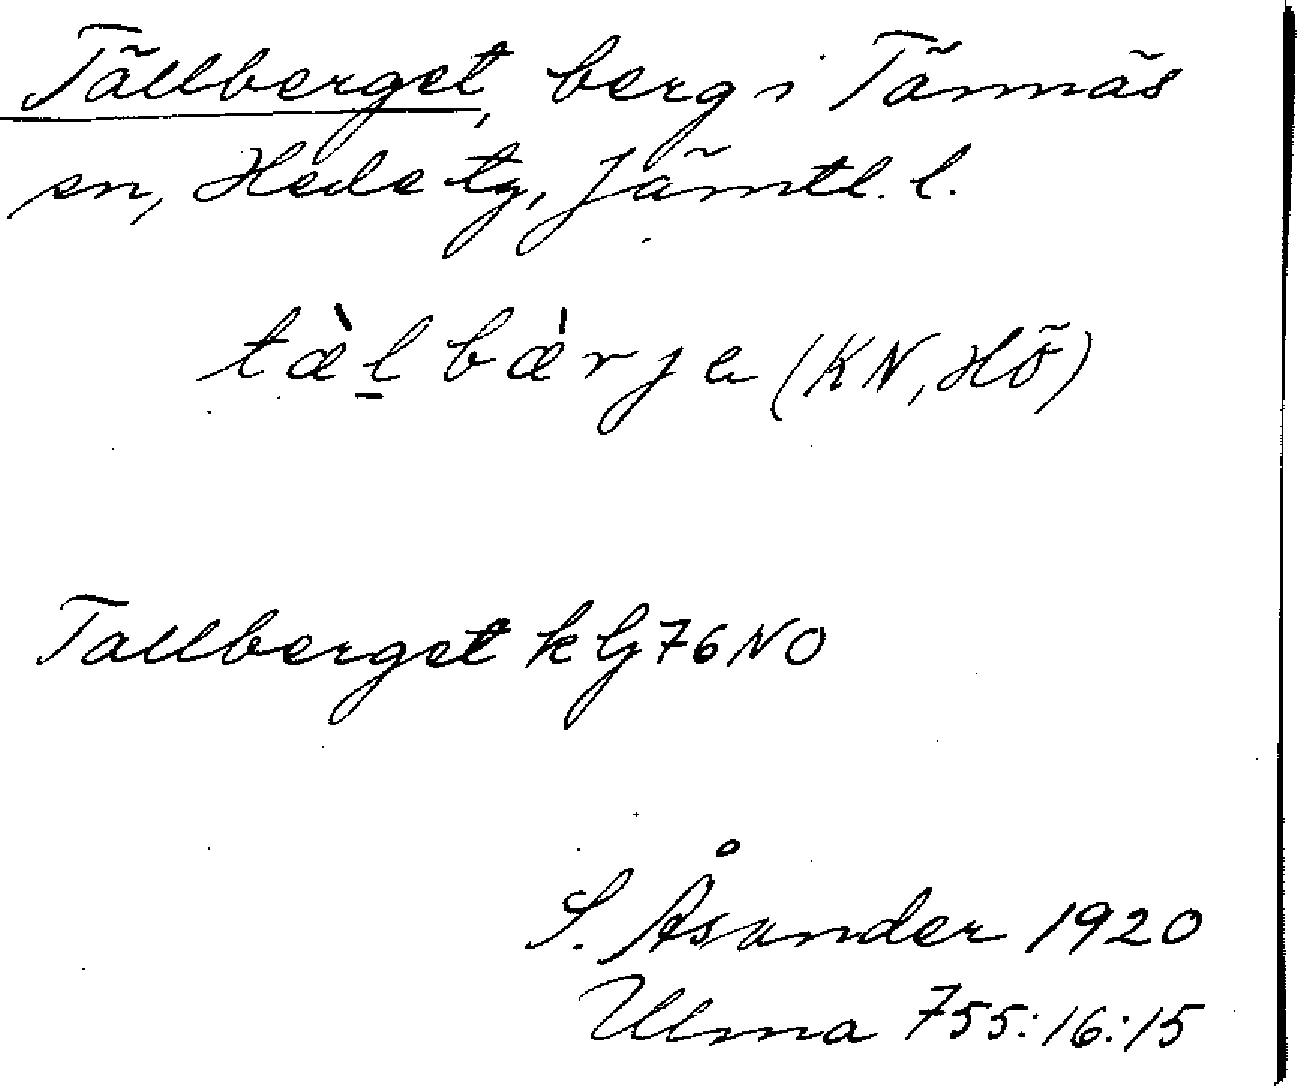 Tällberget, berg i Tännäs
sn, Hede tg, Jämtl. l.
tæ̀l̠bæ̍rja (KN, Hö)
Tallberget k Gj 76 NO
S. Åsander 1920
Ulma 755:16:15